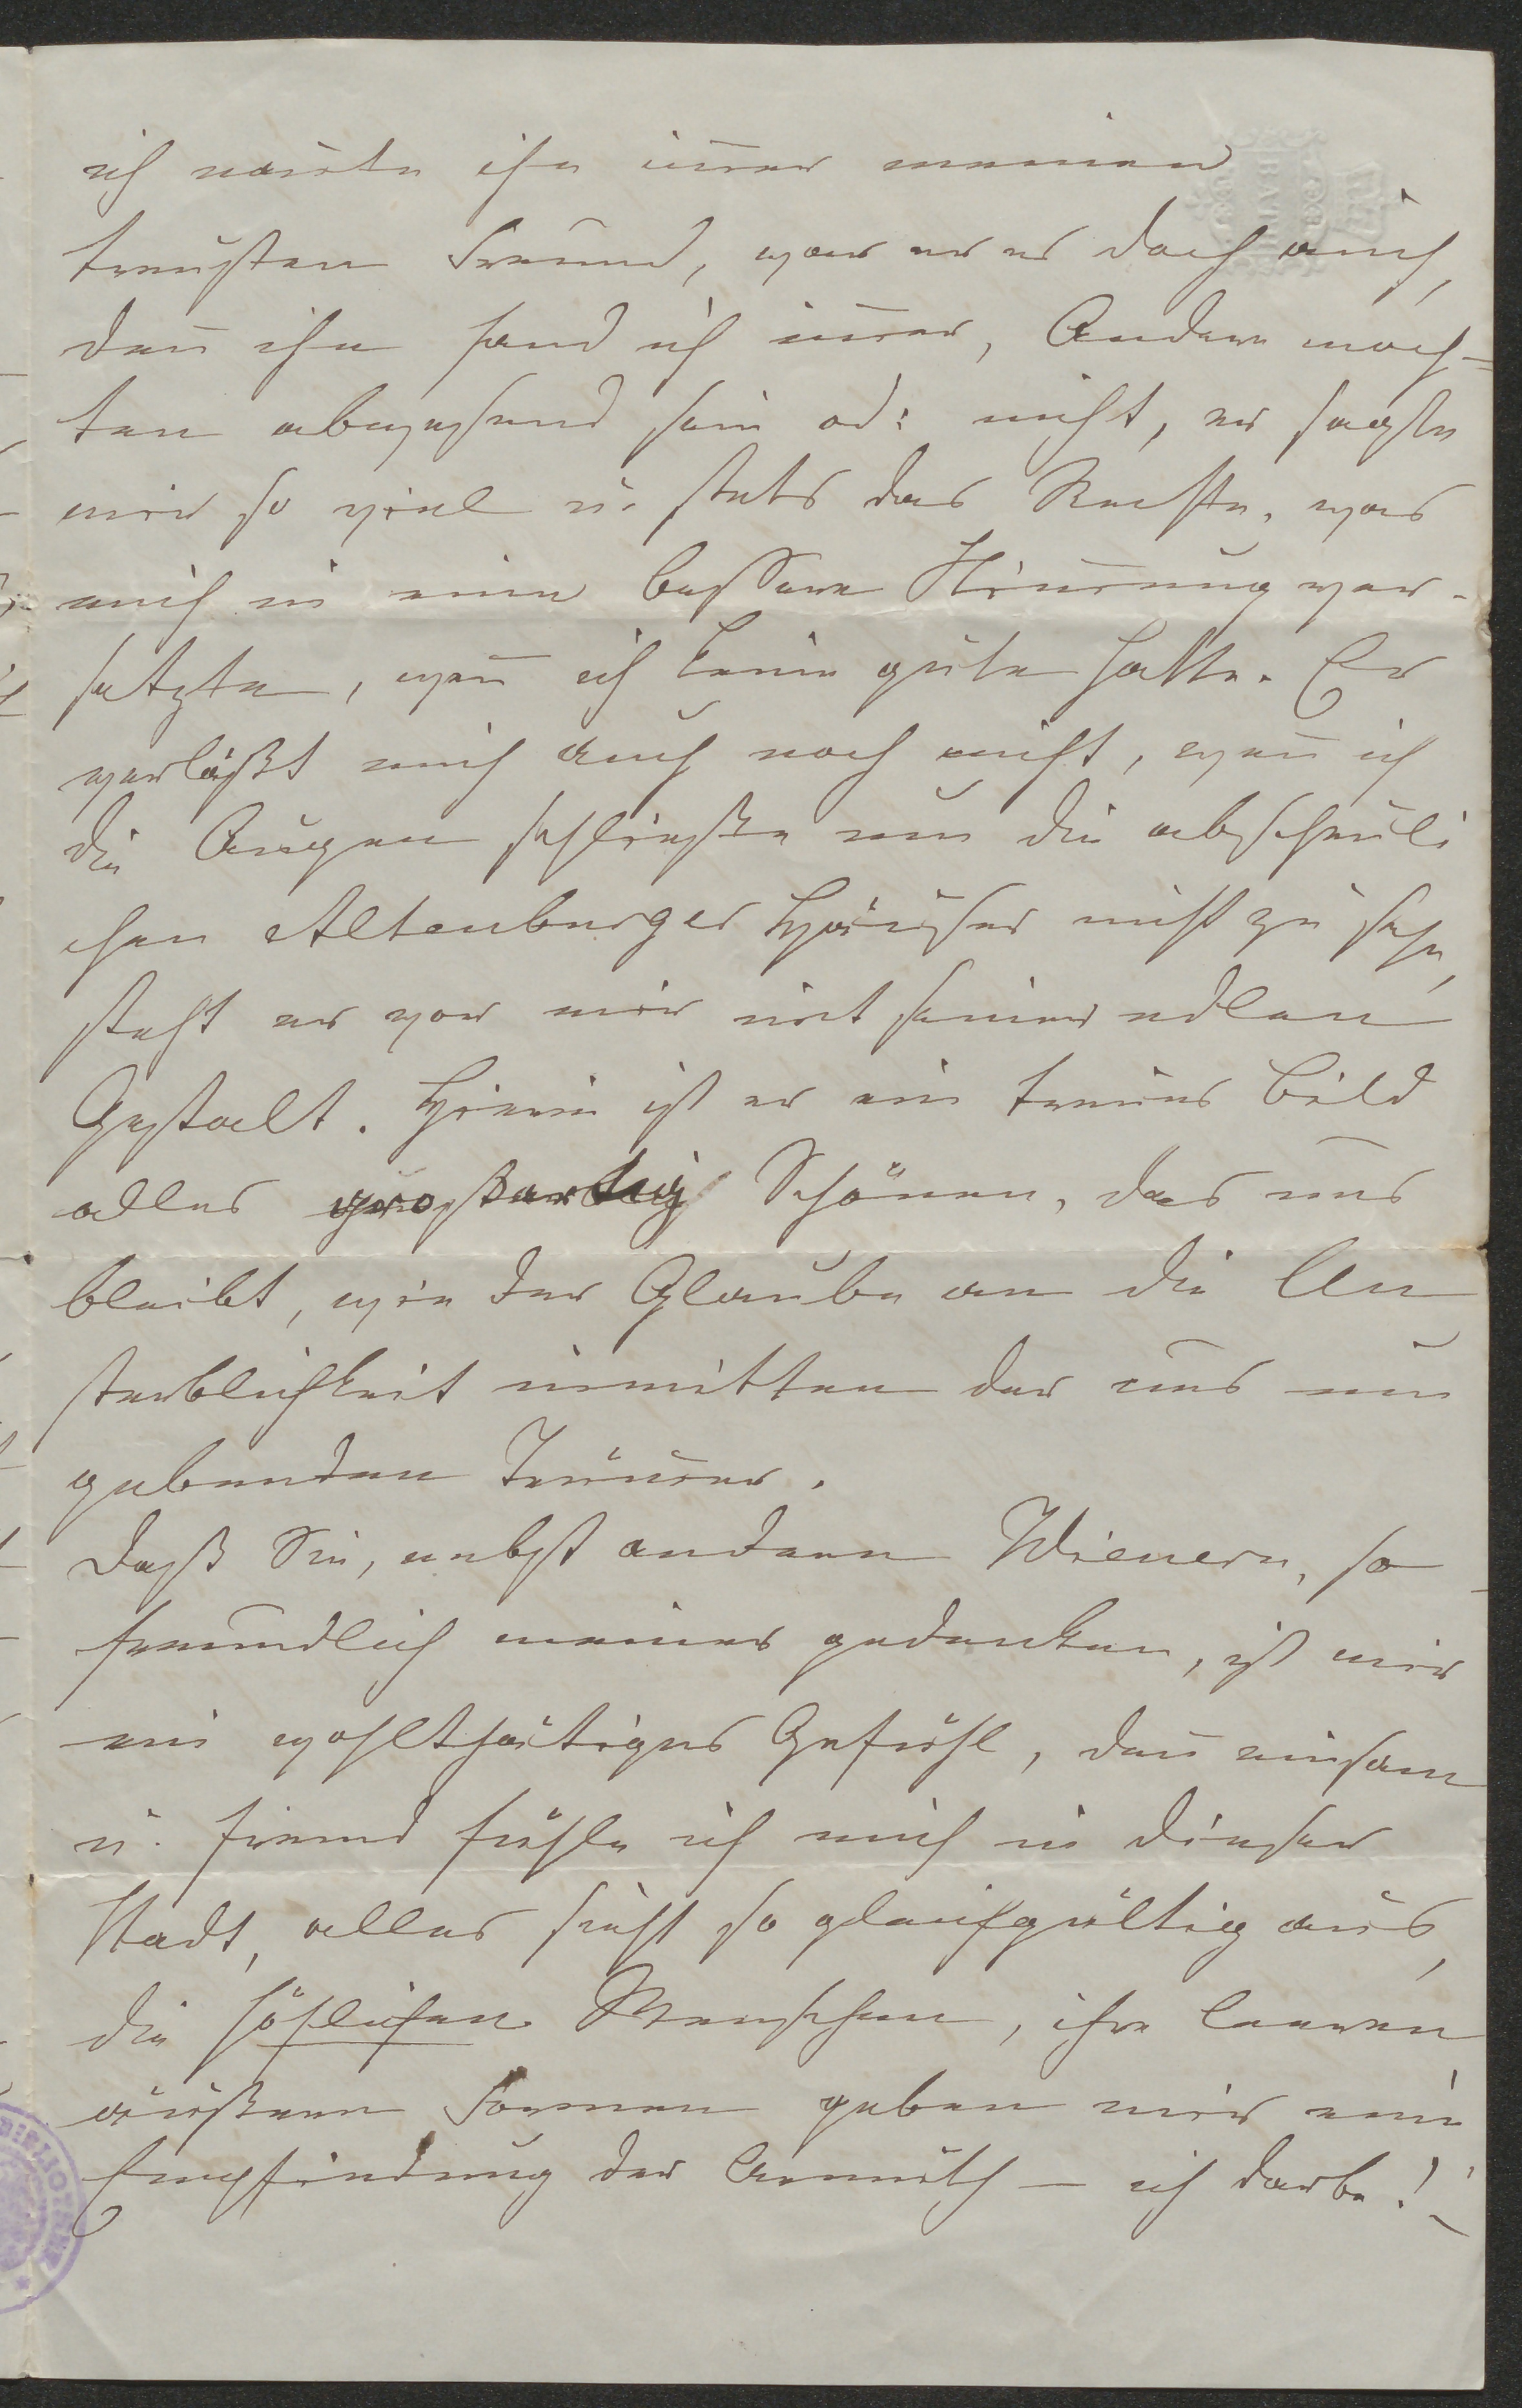 ich nan̄te ihn im̄er meinen
treusten Freund, war er es doch auch,
den̄ ihn fand ich im̄er, Andere moch-
ten abwesend sein od: nicht, er sagte
mir so viel u. stets das Rechte, was
mich in eine bessere Stim̄ung ver-
setzte, wen̄ ich keine gute hatte. Er
verläßt mich auch noch nicht, wen̄ ich
die Augen schließe um die abscheuli
chen Altenburger Häuser nicht zu sehn,
steht er vor mir mit seiner edlen
Gestalt. Hierin ist er ein treues Bild
alles großartig Schönen, das uns
bleibt, wie der Glaube an die Un
sterblichkeit inmitten der uns um
gebenden Trüm̄er.
Daß Sie, nebst andern Wienern, so
freundlich meiner gedenken, ist mir
ein wohlthätiges Gefühl, den̄ einsam
u. fremd fühle ich mich in dieser
Stadt, alles sieht so gleichgültig aus,
die höflichen Menschen, ihre leeren
äußern Formen geben mir eine
Empfindung der Armuth — ich darbe!